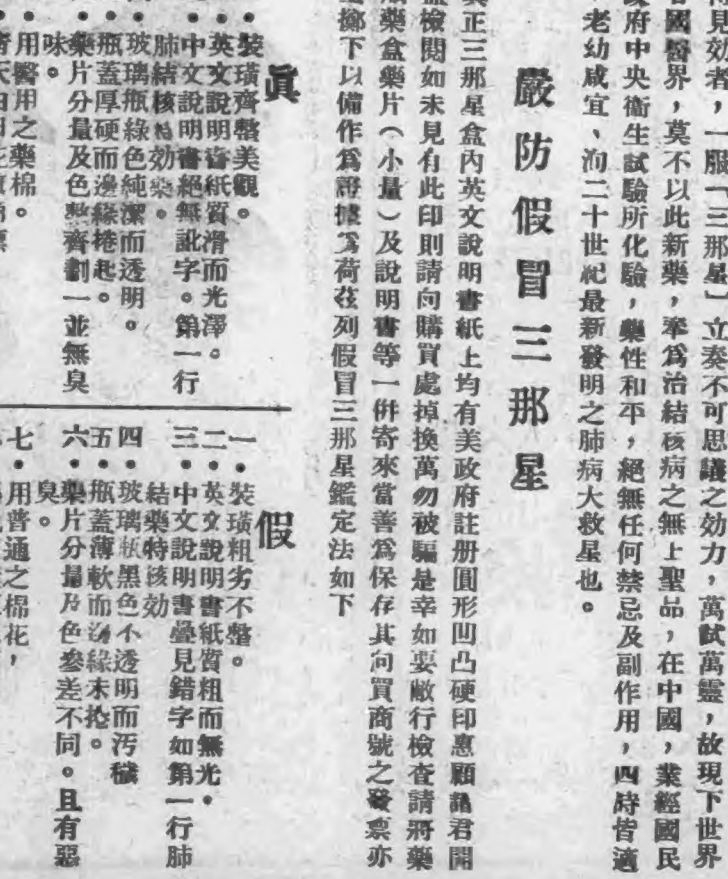 見効者，一服「三那星」立奏不可思議之効力，萬試萬靈，故現下世界
國醫界，莫不以此新藥，奉爲治結核病之無上聖品，在中國，業經國民
政府中央衞生試驗所化驗，藥性和平，絕無任何禁忌及副作用，四時皆適
老幼咸宜、洵二十世紀最新發明之肺病大救星也。
嚴防假冒三那星
眞正三那星盒內英文說明書紙上均有美政府註册圓形凹凸硬印惠顧諸君開
檢閱如未見有此印則請向購買處掉換萬勿被騙是幸如要敝行檢查請將藥
藥盒藥片（小量）及說明書等一倂寄來當善爲保存其向買商號之發票亦
擲下以備作爲證據爲荷茲列假冒三那星鑑定法如下
眞
•裝璜齊整美觀。
•英文說明書紙質滑而光澤。
•中文說明書絕無訛字。第一行
肺結核特効藥。
•玻璃瓶綠色純潔而透明。
•瓶蓋厚硬而邊緣捲起。
•藥片分量及色整齊劃一並無臭
味。
•用醫用之藥棉。
假
一•裝璜粗劣不整。
二•英文說明書紙質粗而無光。
三•中文說明書疊見錯字如第一行肺
結藥特核効
四•玻璃瓶黑色不透明而汚穢
五•瓶蓋薄軟而邊緣未捲。
六•藥片分量及色參差不同。且有惡
臭。
七•用普通之棉花，